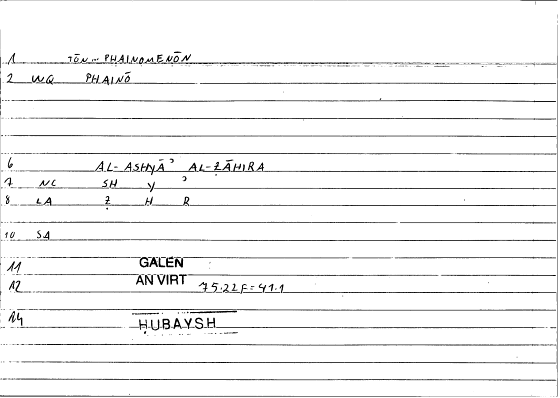 1 TŌN - PHAINOMENŌN
2 WQ PHAINŌ
6 AL-ASHYĀʾ AL-ẒĀHIRA
7 NC SH Y ʾ
8 LA Ẓ H R
10 SA
11 GALEN
12 AN VIRT 75.22F = 41.1
14 ḤUBAYSH